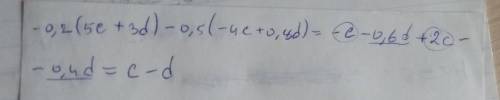 -0,2(5c+3d)-0,5(-4c+0,8d)=-c-0,6d+2c-
-0,4d=c-d